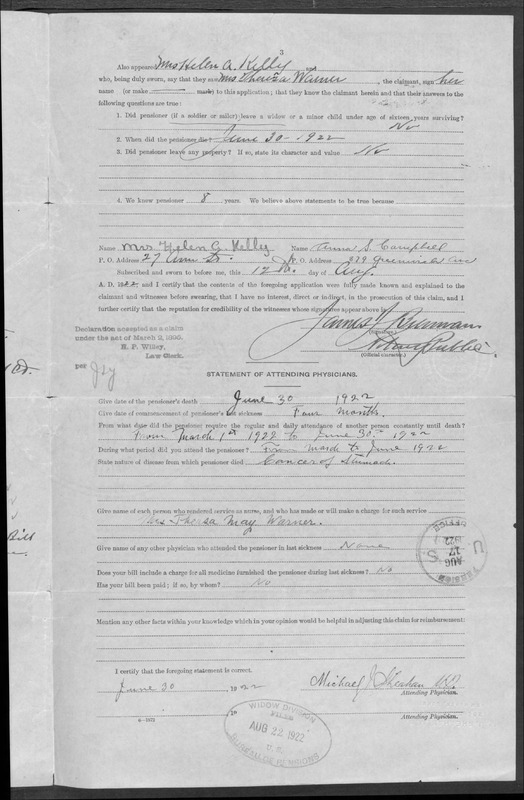 3
Also appeared Mrs Helen A. Kelly
who, being duly sworn, say that they saw Mrs Theresa Warner, the claimant, sign her
name (or make mark) to this application; that they know the claimant herein and that their answers to the
following questions are true:
1. Did pensioner (if a soldier or sailor) leave a widow or a minor child under age of sixteen years surviving?
No
2. When did the pensioner die? June 30 - 1922
3. Did pensioner leave any property? If so, state its character and value No
4. We knew pensioner 8 years. We believe above statements to be true because
Name Mrs Helen G. Kelly Name Anna S. Campbell
P. O. Address 27 Ann St. P. O. Address Greenwich Ave
Subscribed and sworn to before me, this 12th day of Aug.
A. D. 1922 and I certify that the contents of the foregoing application were fully made known and explained to the
claimant and witnesses before swearing, that I have no interest, direct or indirect, in the prosecution of this claim, and I
further certify that the reputation for credibility of the witnesses whose signatures appear above is
James J.
(Signature.)
Notary Public
(Official character.)
Declaration accepted as a claim
under the act of March 2, 1895.
H. P. Willey,
Law Clerk.
per
STATEMENT OF ATTENDING PHYSICIANS.
Give date of the pensioner's death June 30 1922
Give date of commencement of pensioner's last sickness Four Months.
From what date did the pensioner require the regular and daily attendance of another person constantly until death?
From March 1st 1922 to June 30th 1922
During what period did you attend the pensioner? From March to June 1922
State nature of disease from which pensioner died Cancer of Stomach.
Give name of each person who rendered service as nurse, and who has made or will make a charge for such service
Mrs Theresa May Warner.
Give name of any other physician who attended the pensioner in last sickness None
Does your bill include a charge for all medicine furnished the pensioner during last sickness? No
Has your bill been paid; if so, by whom? No
Mention any other facts within your knowledge which in your opinion would be helpful in adjusting this claim for reimbursement:
I certify that the foregoing statement is correct.
June 30, 1922
Michael J. Sheahan M.D.
Attending Physician.
Attending Physician.
6-1572
WIDOW DIVISION
FILED
AUG 22 1922
U. S.
BUREAU OF PENSIONS
U. S.
OFFICE
AUG
17
1922
Bill